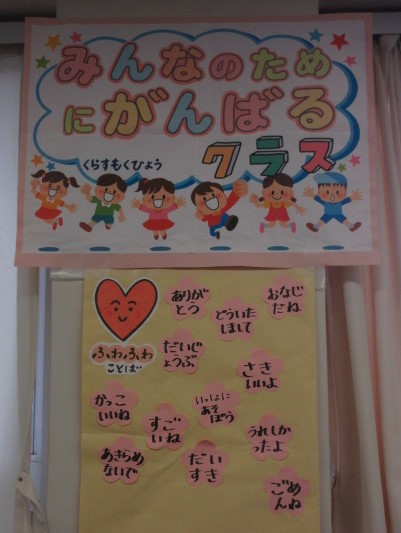 みんなのため
にがんばる
クラス
くらすもくひょう
ふわふわ
ことば
ありが
とう
どういた
しまして
おなじ
だね
だいじ
ょうぶ
さき
いいよ
かっこ
いいね
いっしょに
あそ
ぼう
すご
いね
うれしか
ったよ
あきらめ
ないで
だい
すき
ごめ
んね